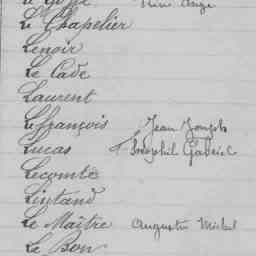 Le Chapelier
Lenoir
Le Cade
Laurent
Lefrançois Jean Joseph
Lucas Théophil Gabriel
Lecomte
Lintand
Le Maître Augustin Michel
Le Bon